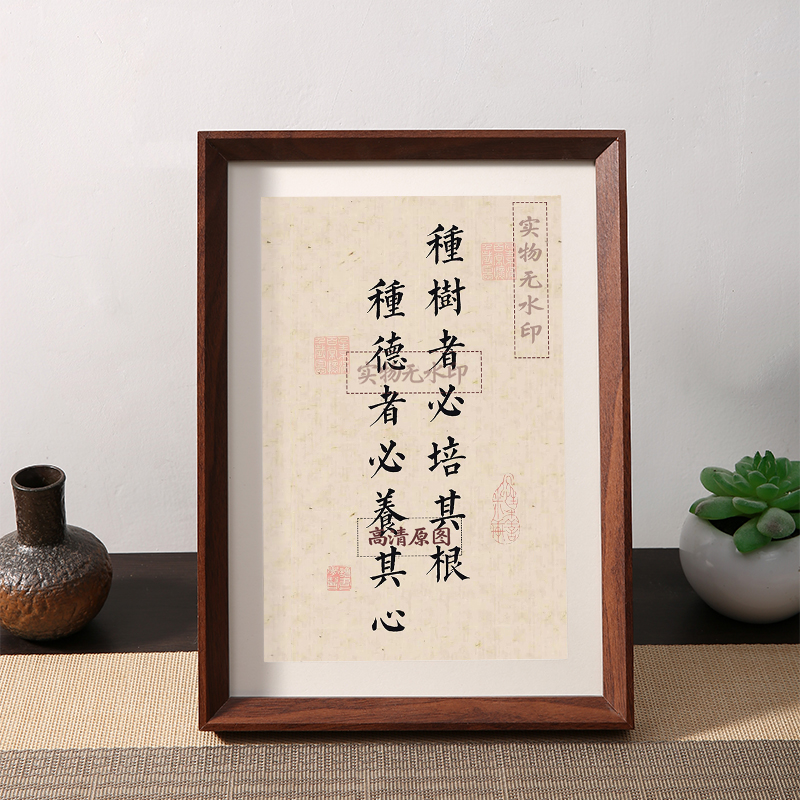 種樹者必培其根
種德者必養其心
实物无水印
实物无水印
高清原图